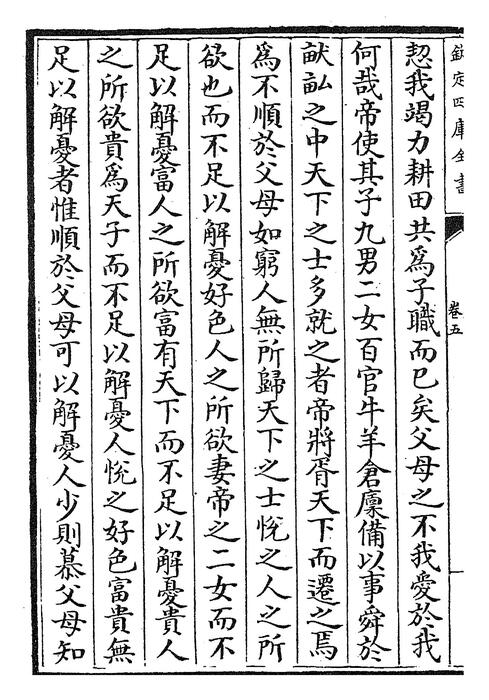 欽定四庫全書
卷五
恝我竭力耕田共爲子職而已矣父母之不我愛於我
何哉帝使其子九男二女百官牛羊倉廩備以事舜於
畎畝之中天下之士多就之者帝將胥天下而遷之焉
爲不順於父母如窮人無所歸天下之士悅之人之所
欲也而不足以解憂好色人之所欲妻帝之二女而不
足以解憂富人之所欲富有天下而不足以解憂貴人
之所欲貴爲天子而不足以解憂人悅之好色富貴無
足以解憂者惟順於父母可以解憂人少則慕父母知